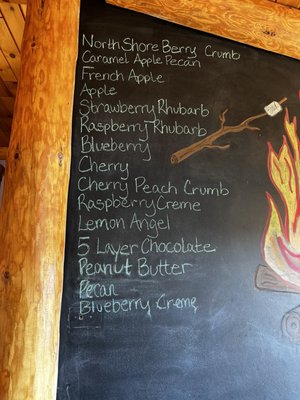 North Shore Berry Crumb
Caramel Apple Pecan
French Apple
Apple
Strawberry Rhubarb
Raspberry Rhubarb
Blueberry
Cherry
Cherry Peach Crumb
Raspberry Creme
Lemon Angel
5 Layer Chocolate
Peanut Butter
Pecan
Blueberry Creme